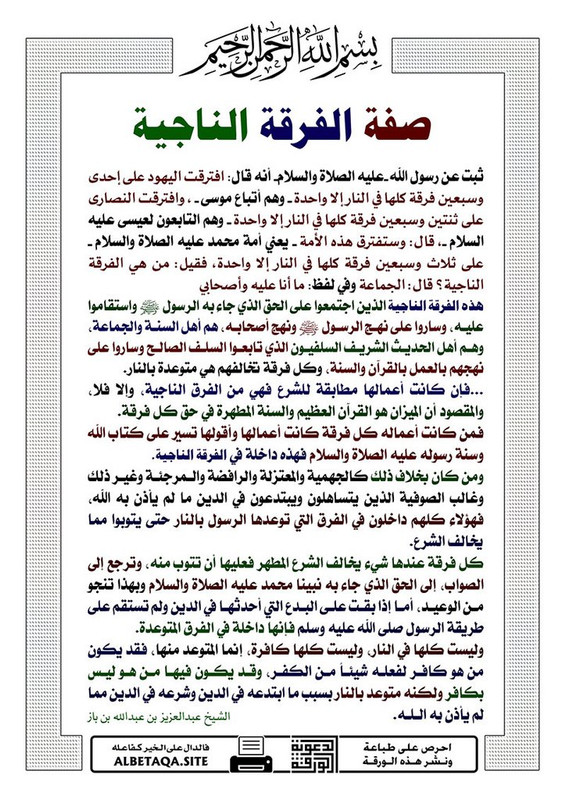 بسم الله الرحمن الرحيم
صفة الفرقة الناجية
ثبت عن رسول الله ـ عليه الصلاة والسلام ـ أنه قال: افترقت اليهود على إحدى
وسبعين فرقة كلها في النار إلا واحدة ـ وهم أتباع موسى ـ ، وافترقت النصارى
على ثنتين وسبعين فرقة كلها في النار إلا واحدة ـ وهم التابعون لعيسى عليه
السلام ـ، قال: وستفترق هذه الأمة ـ يعني أمة محمد عليه الصلاة والسلام ـ
على ثلاث وسبعين فرقة كلها في النار إلا واحدة، فقيل: من هي الفرقة
الناجية؟ قال: الجماعة وفي لفظ: ما أنا عليه وأصحابي
هذه الفرقة الناجية الذين اجتمعوا على الحق الذي جاء به الرسول ﷺ واستقاموا
عليه، وساروا على نهج الرسول ﷺ ونهج أصحابه، هم أهل السنة والجماعة،
وهم أهل الحديث الشريف السلفيون الذي تابعوا السلف الصالح وساروا على
نهجهم بالعمل بالقرآن والسنة، وكل فرقة تخالفهم هي متوعدة بالنار.
...فإن كانت أعمالها مطابقة للشرع فهي من الفرق الناجية، وإلا فلا،
والمقصود أن الميزان هو القرآن العظيم والسنة المطهرة في حق كل فرقة.
فمن كانت أعماله كل فرقة كانت أعمالها وأقولها تسير على كتاب الله
وسنة رسوله عليه الصلاة والسلام فهذه داخلة في الفرقة الناجية.
ومن كان بخلاف ذلك كالجهمية والمعتزلة والرافضة والمرجئة وغير ذلك
وغالب الصوفية الذين يتساهلون ويبتدعون في الدين ما لم يأذن به الله،
فهؤلاء كلهم داخلون في الفرق التي توعدها الرسول بالنار حتى يتوبوا مما
يخالف الشرع.
كل فرقة عندها شيء يخالف الشرع المطهر فعليها أن تتوب منه، وترجع إلى
الصواب، إلى الحق الذي جاء به نبينا محمد عليه الصلاة والسلام وبهذا تنجو
من الوعيد، أما إذا بقت على البدع التي أحدثها في الدين ولم تستقم على
طريقة الرسول صلى الله عليه وسلم فإنها داخلة في الفرق المتوعدة.
وليست كلها في النار، وليست كلها كافرة، إنما المتوعد منها، فقد يكون
من هو كافر لفعله شيئاً من الكفر، وقد يكون فيها من هو ليس
بكافر ولكنه متوعد بالنار بسبب ما ابتدعه في الدين وشرعه في الدين مما
لم يأذن به الله.
الشيخ عبدالعزيز بن عبدالله بن باز
احرص على طباعة
ونشر هذه الورقة
الورقة الدعوية
فالدال على الخير كفاعله
ALBETAQA.SITE